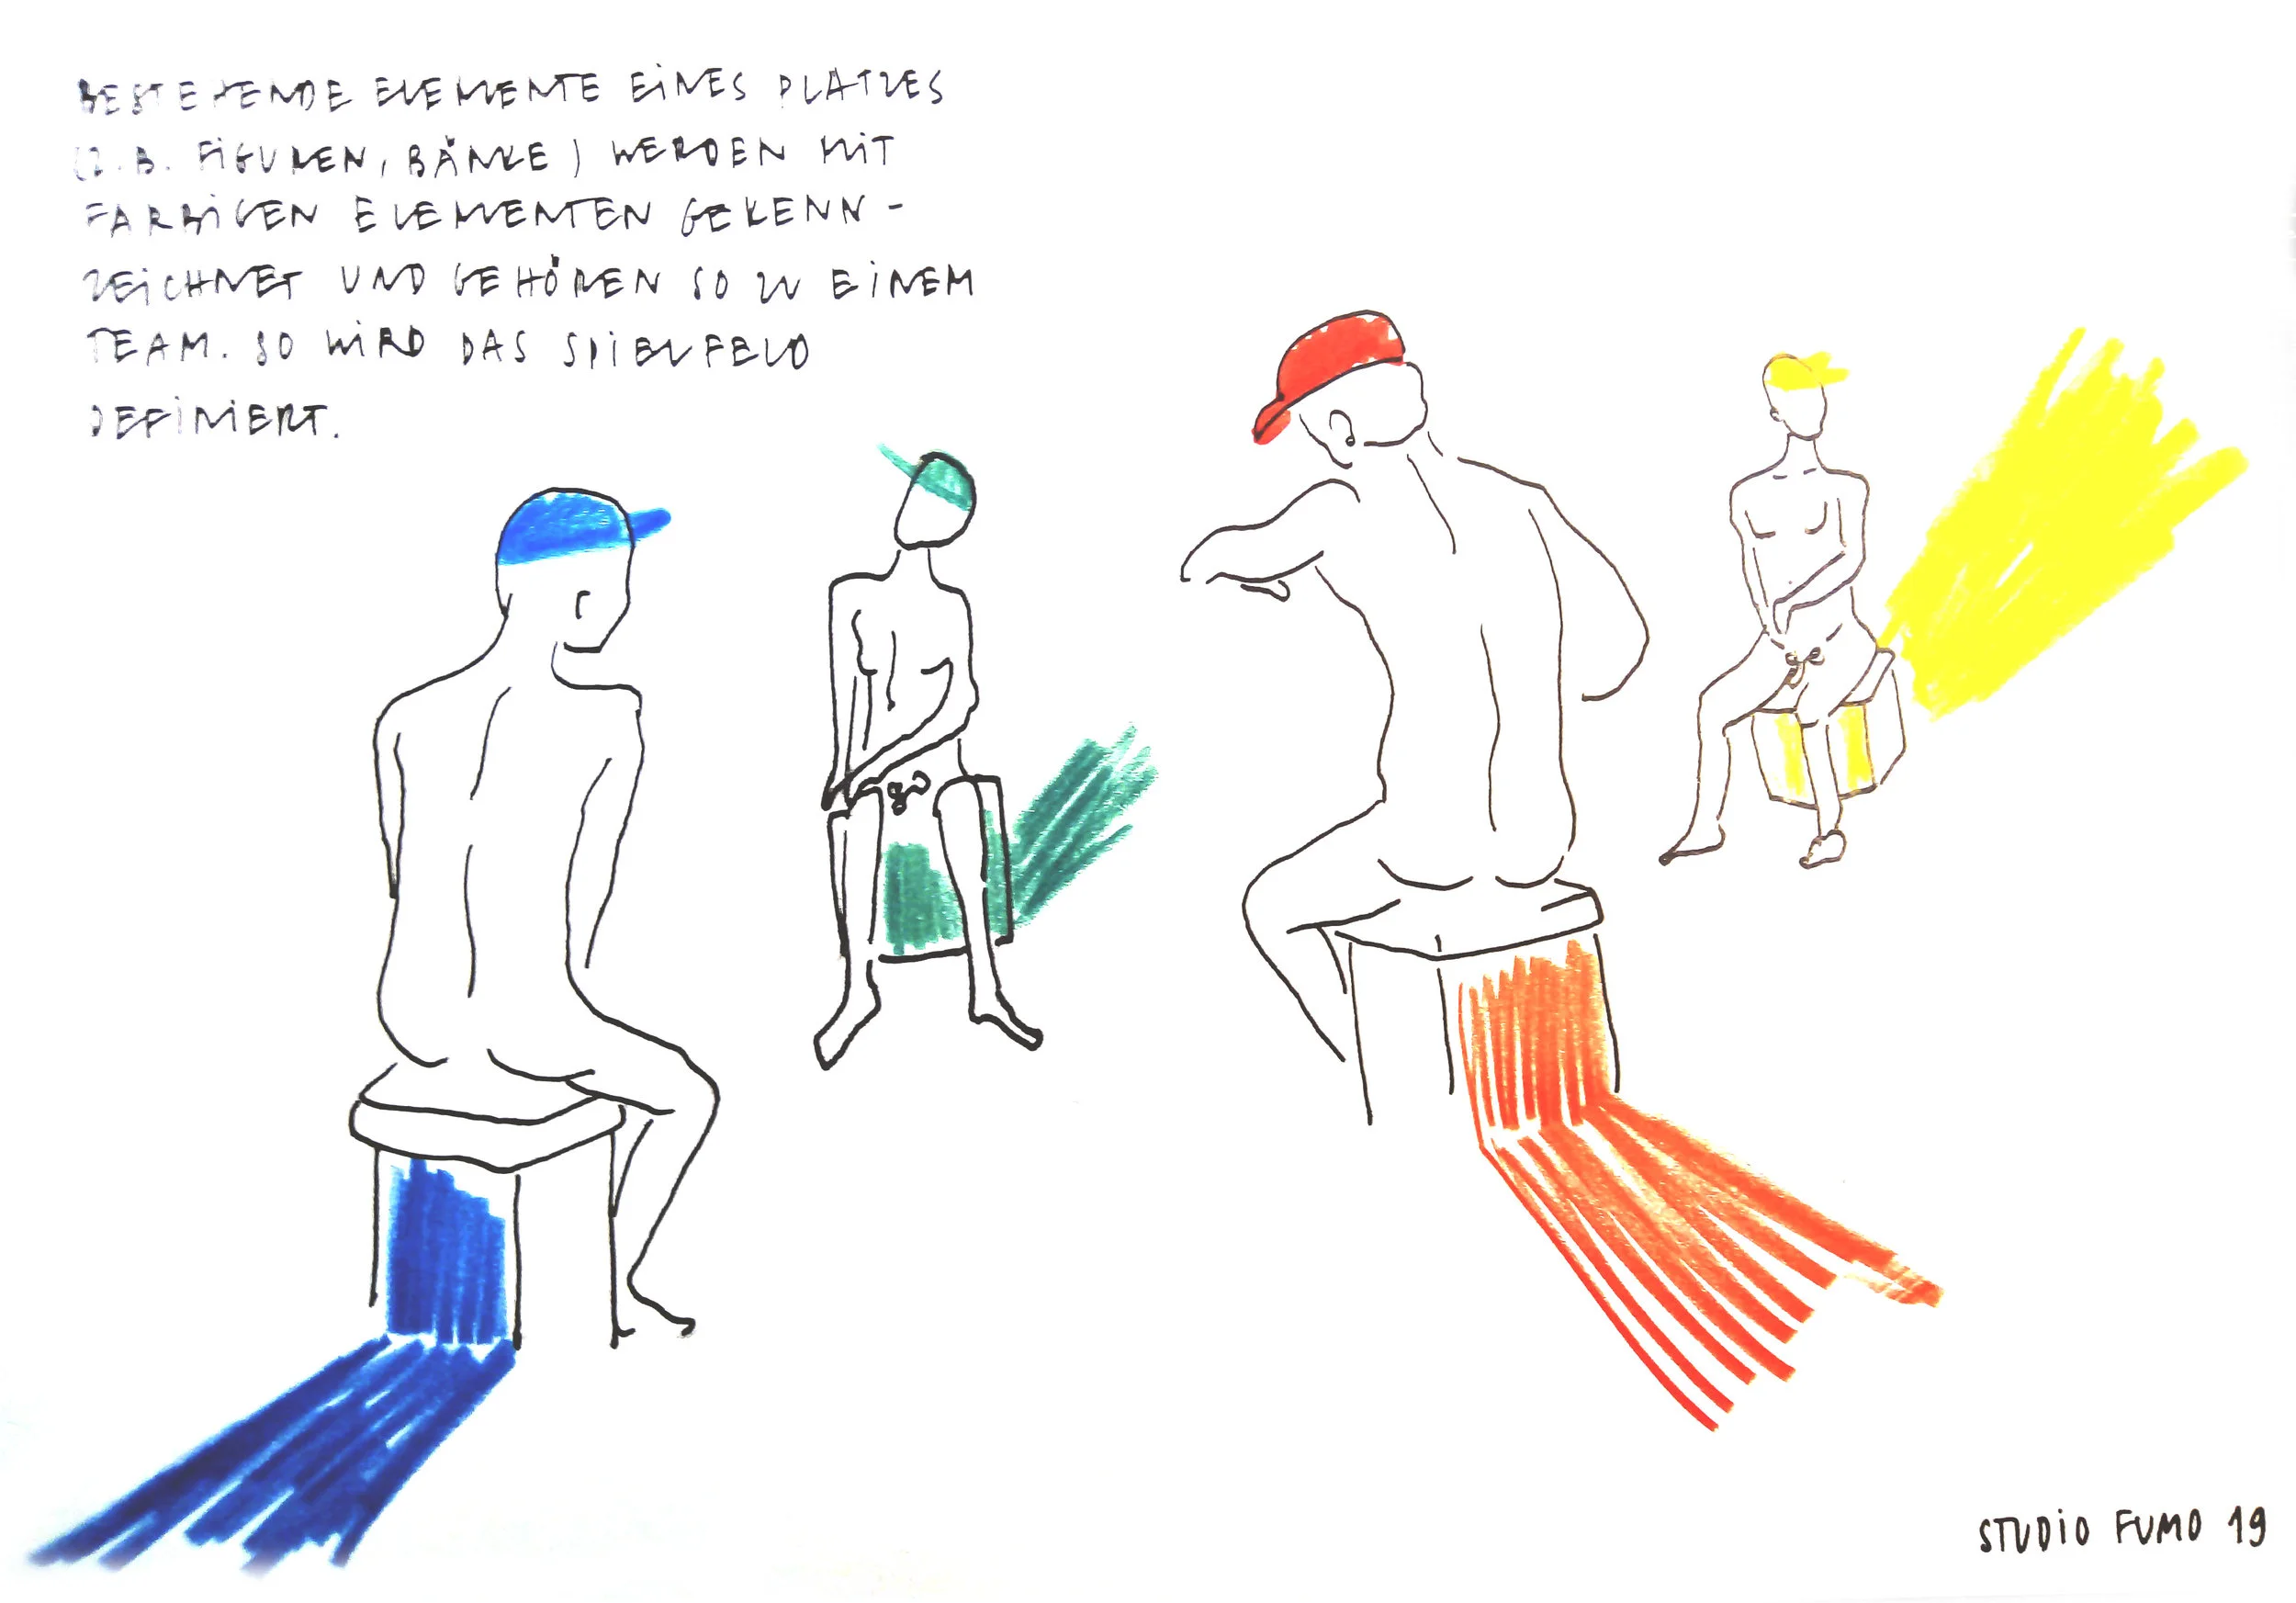 BESTEHENDE ELEMENTE EINES PLATZES
(Z.B. FIGUREN, BÄNKE) WERDEN MIT
FARBIGEN ELEMENTEN GEKENN-
ZEICHNET UND GEHÖREN SO ZU EINEM
TEAM. SO WIRD DAS SPIELFELD
DEFINIERT.
STUDIO FUMO 19